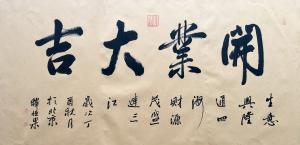 開業大吉
生意
興隆
通四
海
財源
茂盛
達三
江
歲次丁
酉秋月
於北京